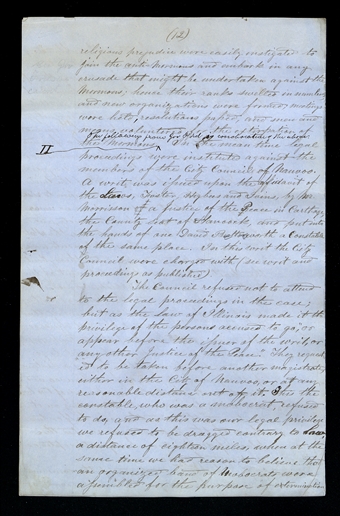 (12)
religious prejudice were easily instigated to
join the anti-Mormons and embark in any
crusade that might be undertaken against the
Mormons; hence their ranks swelled in numbers
and new organizations were formed, meetings
were held, resolutions passed, and men and
means volunteered for the extirpation
the Mormons. In the mean time legal
The following from Gov Ford is of the above
II
proceedings were instituted against the
members of the City Council of Nauvoo.
A writ was issued upon the affidavit of
the Laws, Fosters, Higbees and Ivins, by Mr
Morrison a Justice of the Peace in Carthage
the County Seat of Hancock, and put into
the hands of one David Bettisworth a Constable
of the same place. In this writ the City
Council were charged with (see writ and
proceedings as published)
The Council refused not to attend
to the legal proceedings in the case,
but as the law of Illinois made it the
privilege of the persons accused to "go" or
appear before the issuer of the writ, or
any other Justice of the Peace." They request
ed to be taken before another magistrate,
either in the City of Nauvoo, or at any
reasonable distance out of it. This the
constable, who was a mobocrat, refused
to do, and as this was our legal privilege
we refused to be dragged contrary to Law,
a distance of eighteen miles, when at the
same time we had reason to believe that
an organized band of Mobocrats were
assembled for the purpose of extermination